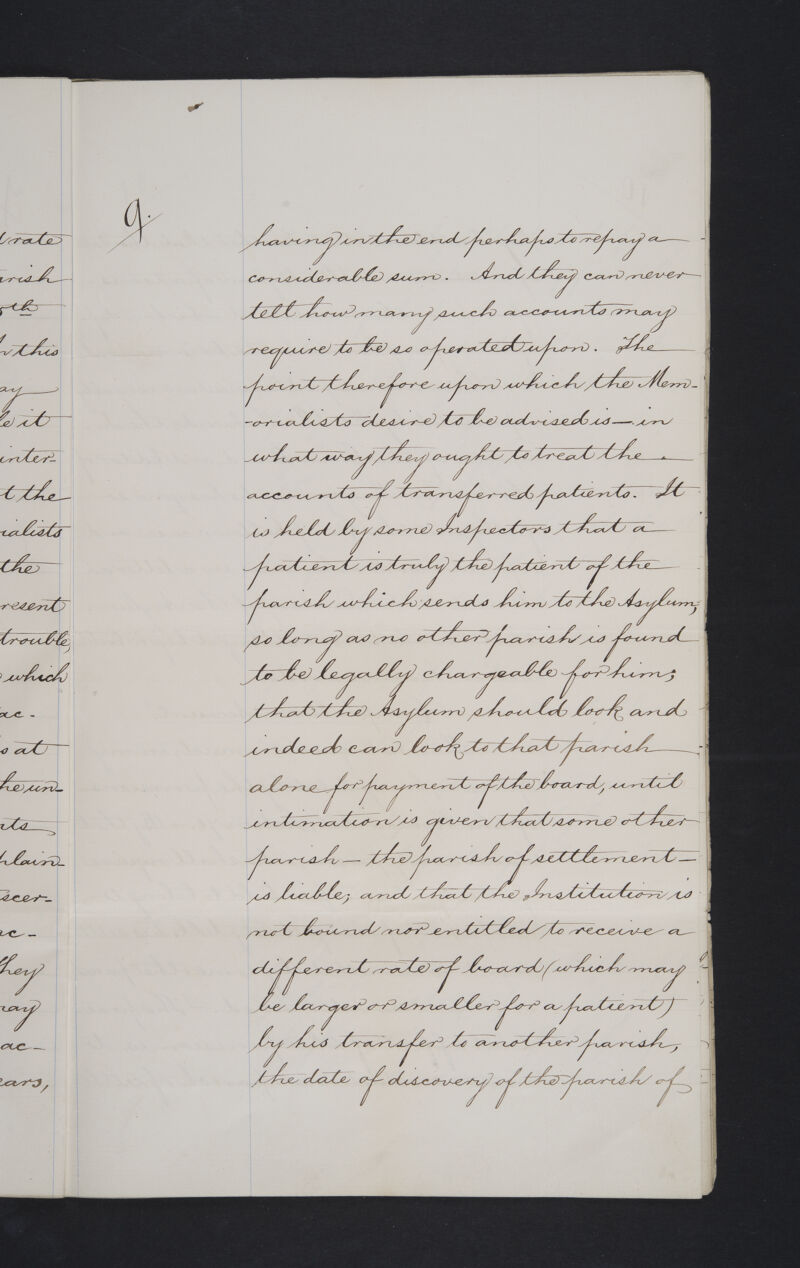 t rate
arish
5th
n this
ay
le it
inter-
t the
ialists
the
resent
trouble,
which
ac-
s at
he un-
nts
plain-
scer-
ac-
they
may
ac-
ears,
9.
having in the end perhaps to repay a
considerable sum. And they can never
tell how many such accounts may
require to be so operated upon. The
point therefore upon which the Mem-
-orialists desire to be advised is — in
what way they ought to treat the
accounts of transferred patients. It
is held by some Inspectors that a
patient is truly the patient of the
parish which sends him to the Asylum,
so long as no other parish is found
to be legally chargeable for him;
that the Asylum should look and
indeed can look to that parish
alone for payment of the board, until
intimation is given that some other
parish — the parish of settlement —
is liable; and that the Institution is
not bound nor entitled to receive a
different rate of board (which may
be larger or smaller for a patient)
by his transfer to another parish,
the date of discovery of the parish of